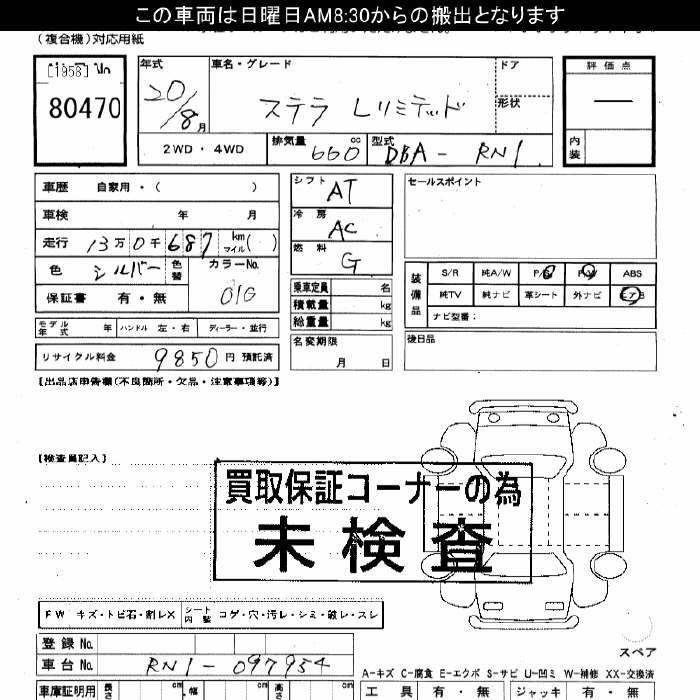 この車両は日曜日AM8:30からの搬出となります
(複合機)対応用紙
[1958] No
80470
年式
20/8月
車名・グレード
ステラ Lリミテッド
ドア
形状
評価点
—
内装
2WD・4WD
排気量 660 cc
型式 DBA-RN1
車歴 自家用・( )
車検 年 月
走行 13万0千687 km マイル( )
色 シルバー 色替
カラーNo. 01G
保証書 有・無
シフト AT
冷房 AC
燃料 G
乗車定員 名
積載量 kg
総重量 kg
セールスポイント
装備品
S/R 純A/W P/S P/W ABS
純TV 純ナビ 革シート 外ナビ エアB
ナビ型番:
モデル年式 年 ハンドル 左・右 ディーラー・並行
リサイクル料金 9850円 預託済
名変期限 月 日
後日品
【出品店申告欄(不良箇所・欠品・注意事項等)】
【検査員記入】
買取保証コーナーの為
未検査
FW キズ・トビ石・割レX シート内装 コゲ・穴・汚レ・シミ・破レ・スレ
スペア
登録No.
車台No. RN1-097954
A-キズ C-腐食 E-エクボ S-サビ U-凹ミ W-補修 XX-交換済
車庫証明用 長さ cm 幅 cm 高さ cm
工具 有・無 ジャッキ 有・無